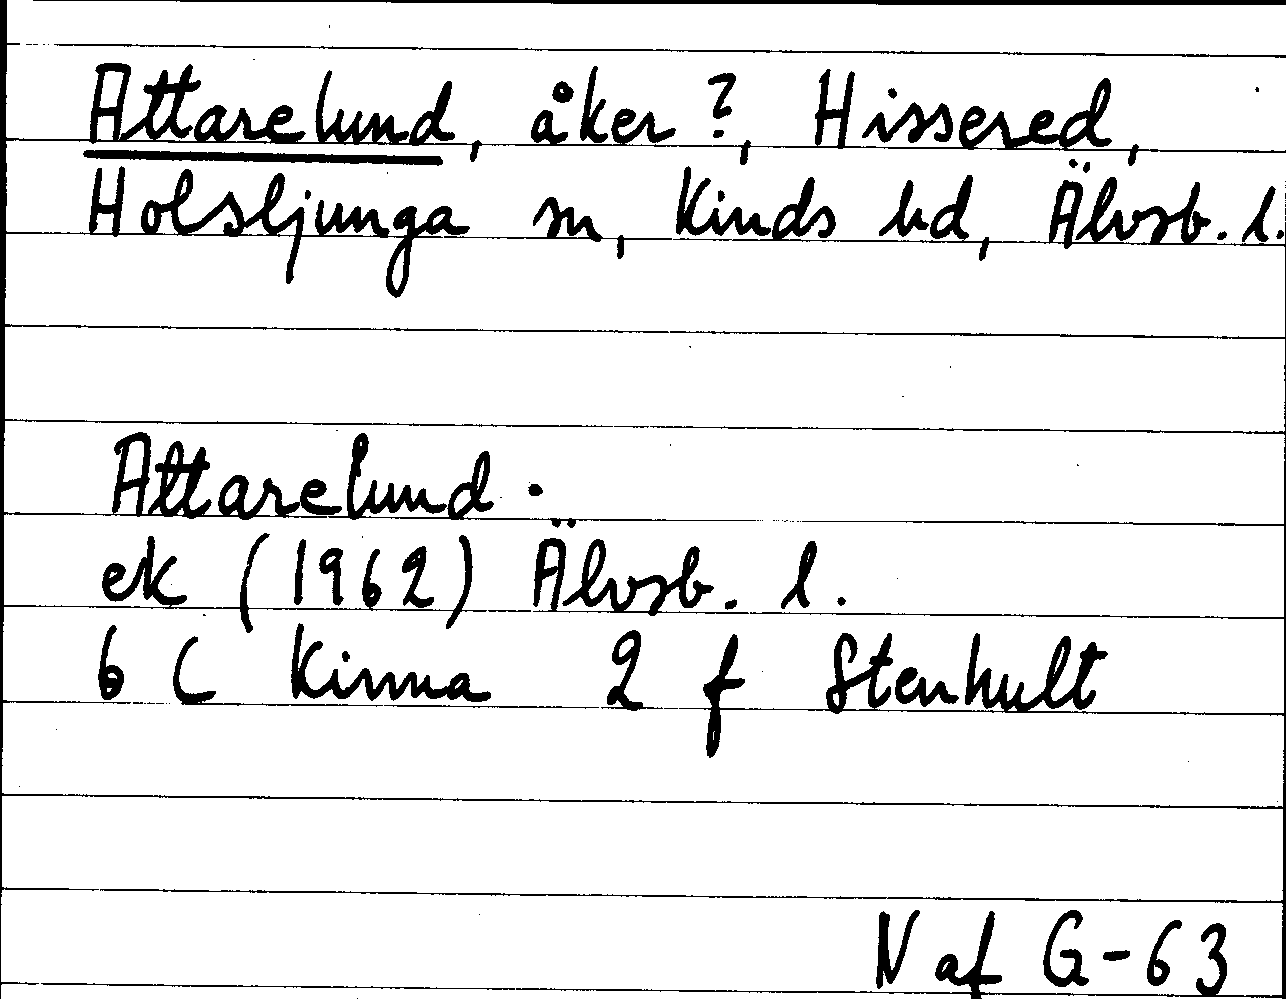 Attarelund, åker?, Hissered,
Holsljunga sn, Kinds hd, Älvsb. l.
Attarelund.
ek (1962) Älvsb. l.
6 C Kinna 2 f Stenhult
N af G-63